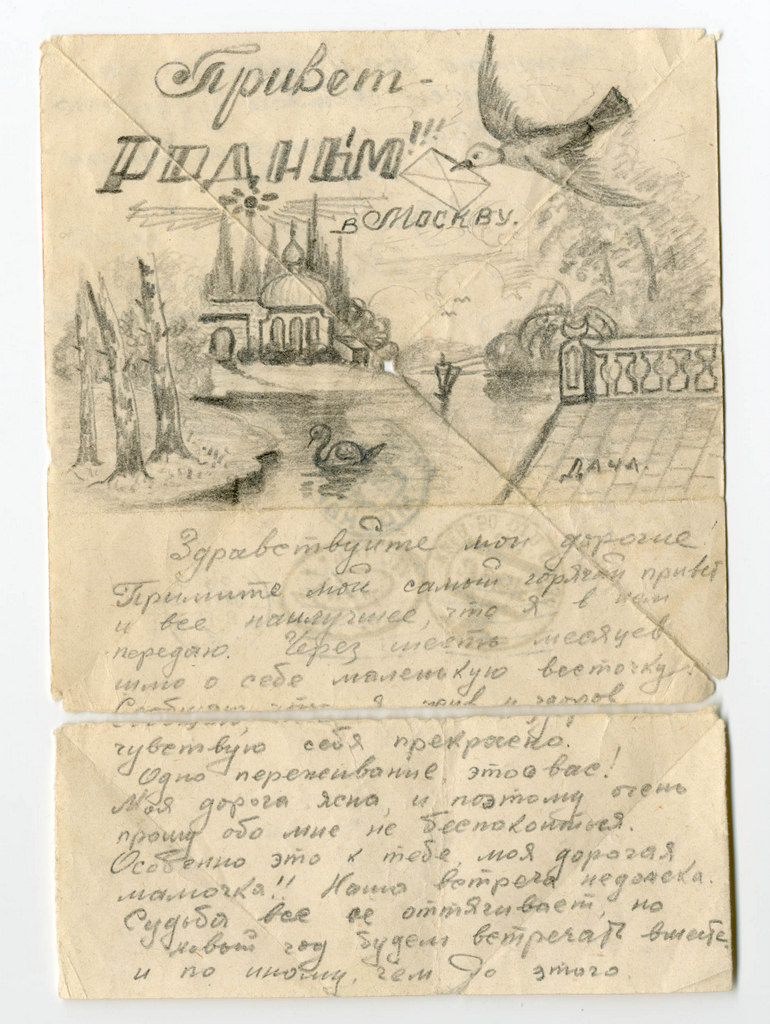 Привет-
РОДНЫМ!!!
в МОСКВУ.
ДАЧА.
Здравствуйте мои дорогие
Примите мой самый горячий привет
и все наилучшее, что я в нем
передаю. Через шесть месяцев
шлю о себе маленькую весточку.
Сообщаю, что я жив и здоров
чувствую себя прекрасно.
Одно переживание, это о вас!
Моя дорога ясна, и поэтому очень
прошу обо мне не беспокоиться.
Особенно это к тебе, моя дорогая
мамочка!! Наша встреча недалека.
Судьба все ее оттягивает, но
новый год будем встречать вместе
и по иному, чем до этого